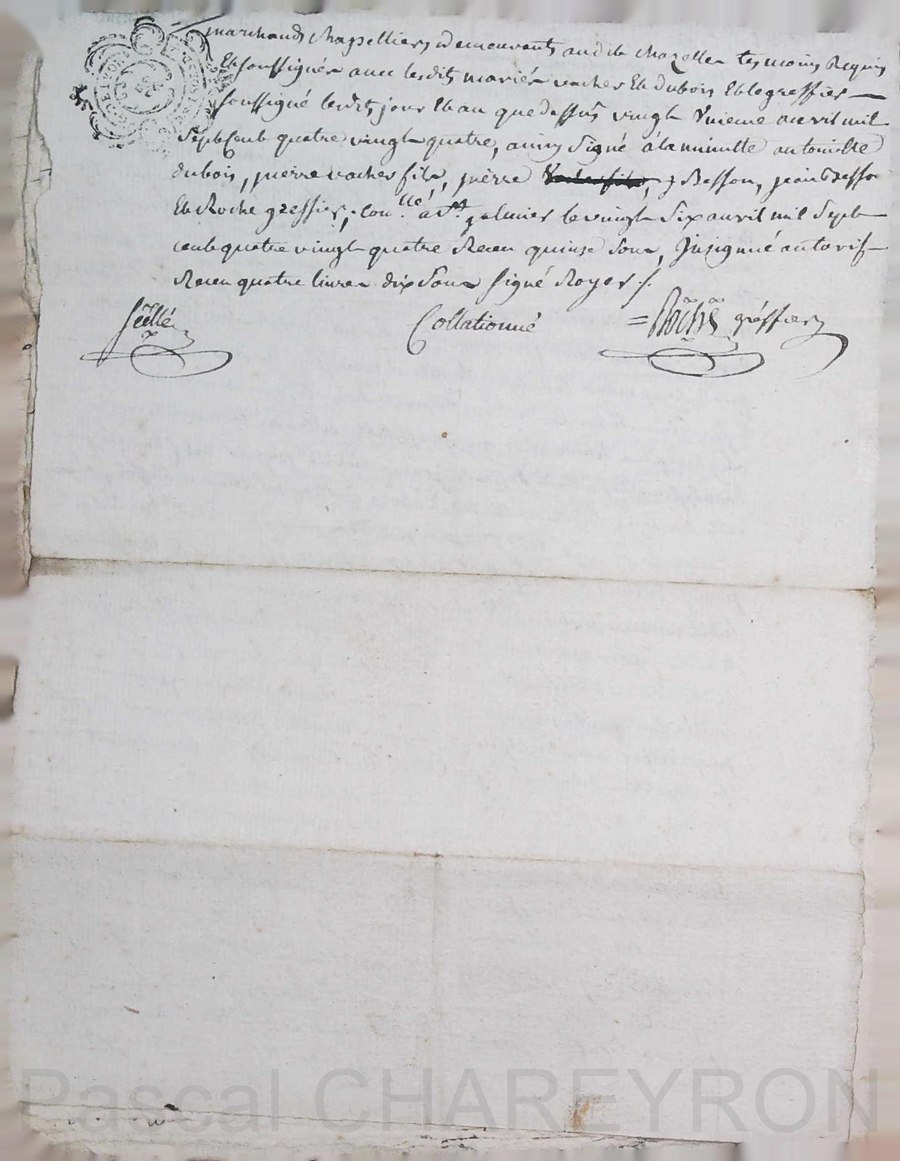 marchands chapelliers demeurants audit chazelles temoins requis
Et soussignés avec lesdits mariés vacher Et dubois Et le greffier
soussigné lesdits jour Et an que dessus vingt unieme avril mil
sept cent quatre vingt quatre, ainsy signé a la minutte antoinette
dubois, pierre vacher fils, pierre Besson, jean Besson
Et Roche greffier, con.llé a St. galmier le vingt six avril mil sept
cent quatre vingt quatre Receu quinse sous, Insignué au tarif
Receu quatre livres dix sous signé Royer ./.
Scellé Collationné = Roche gréffier
Pascal CHAREYRON